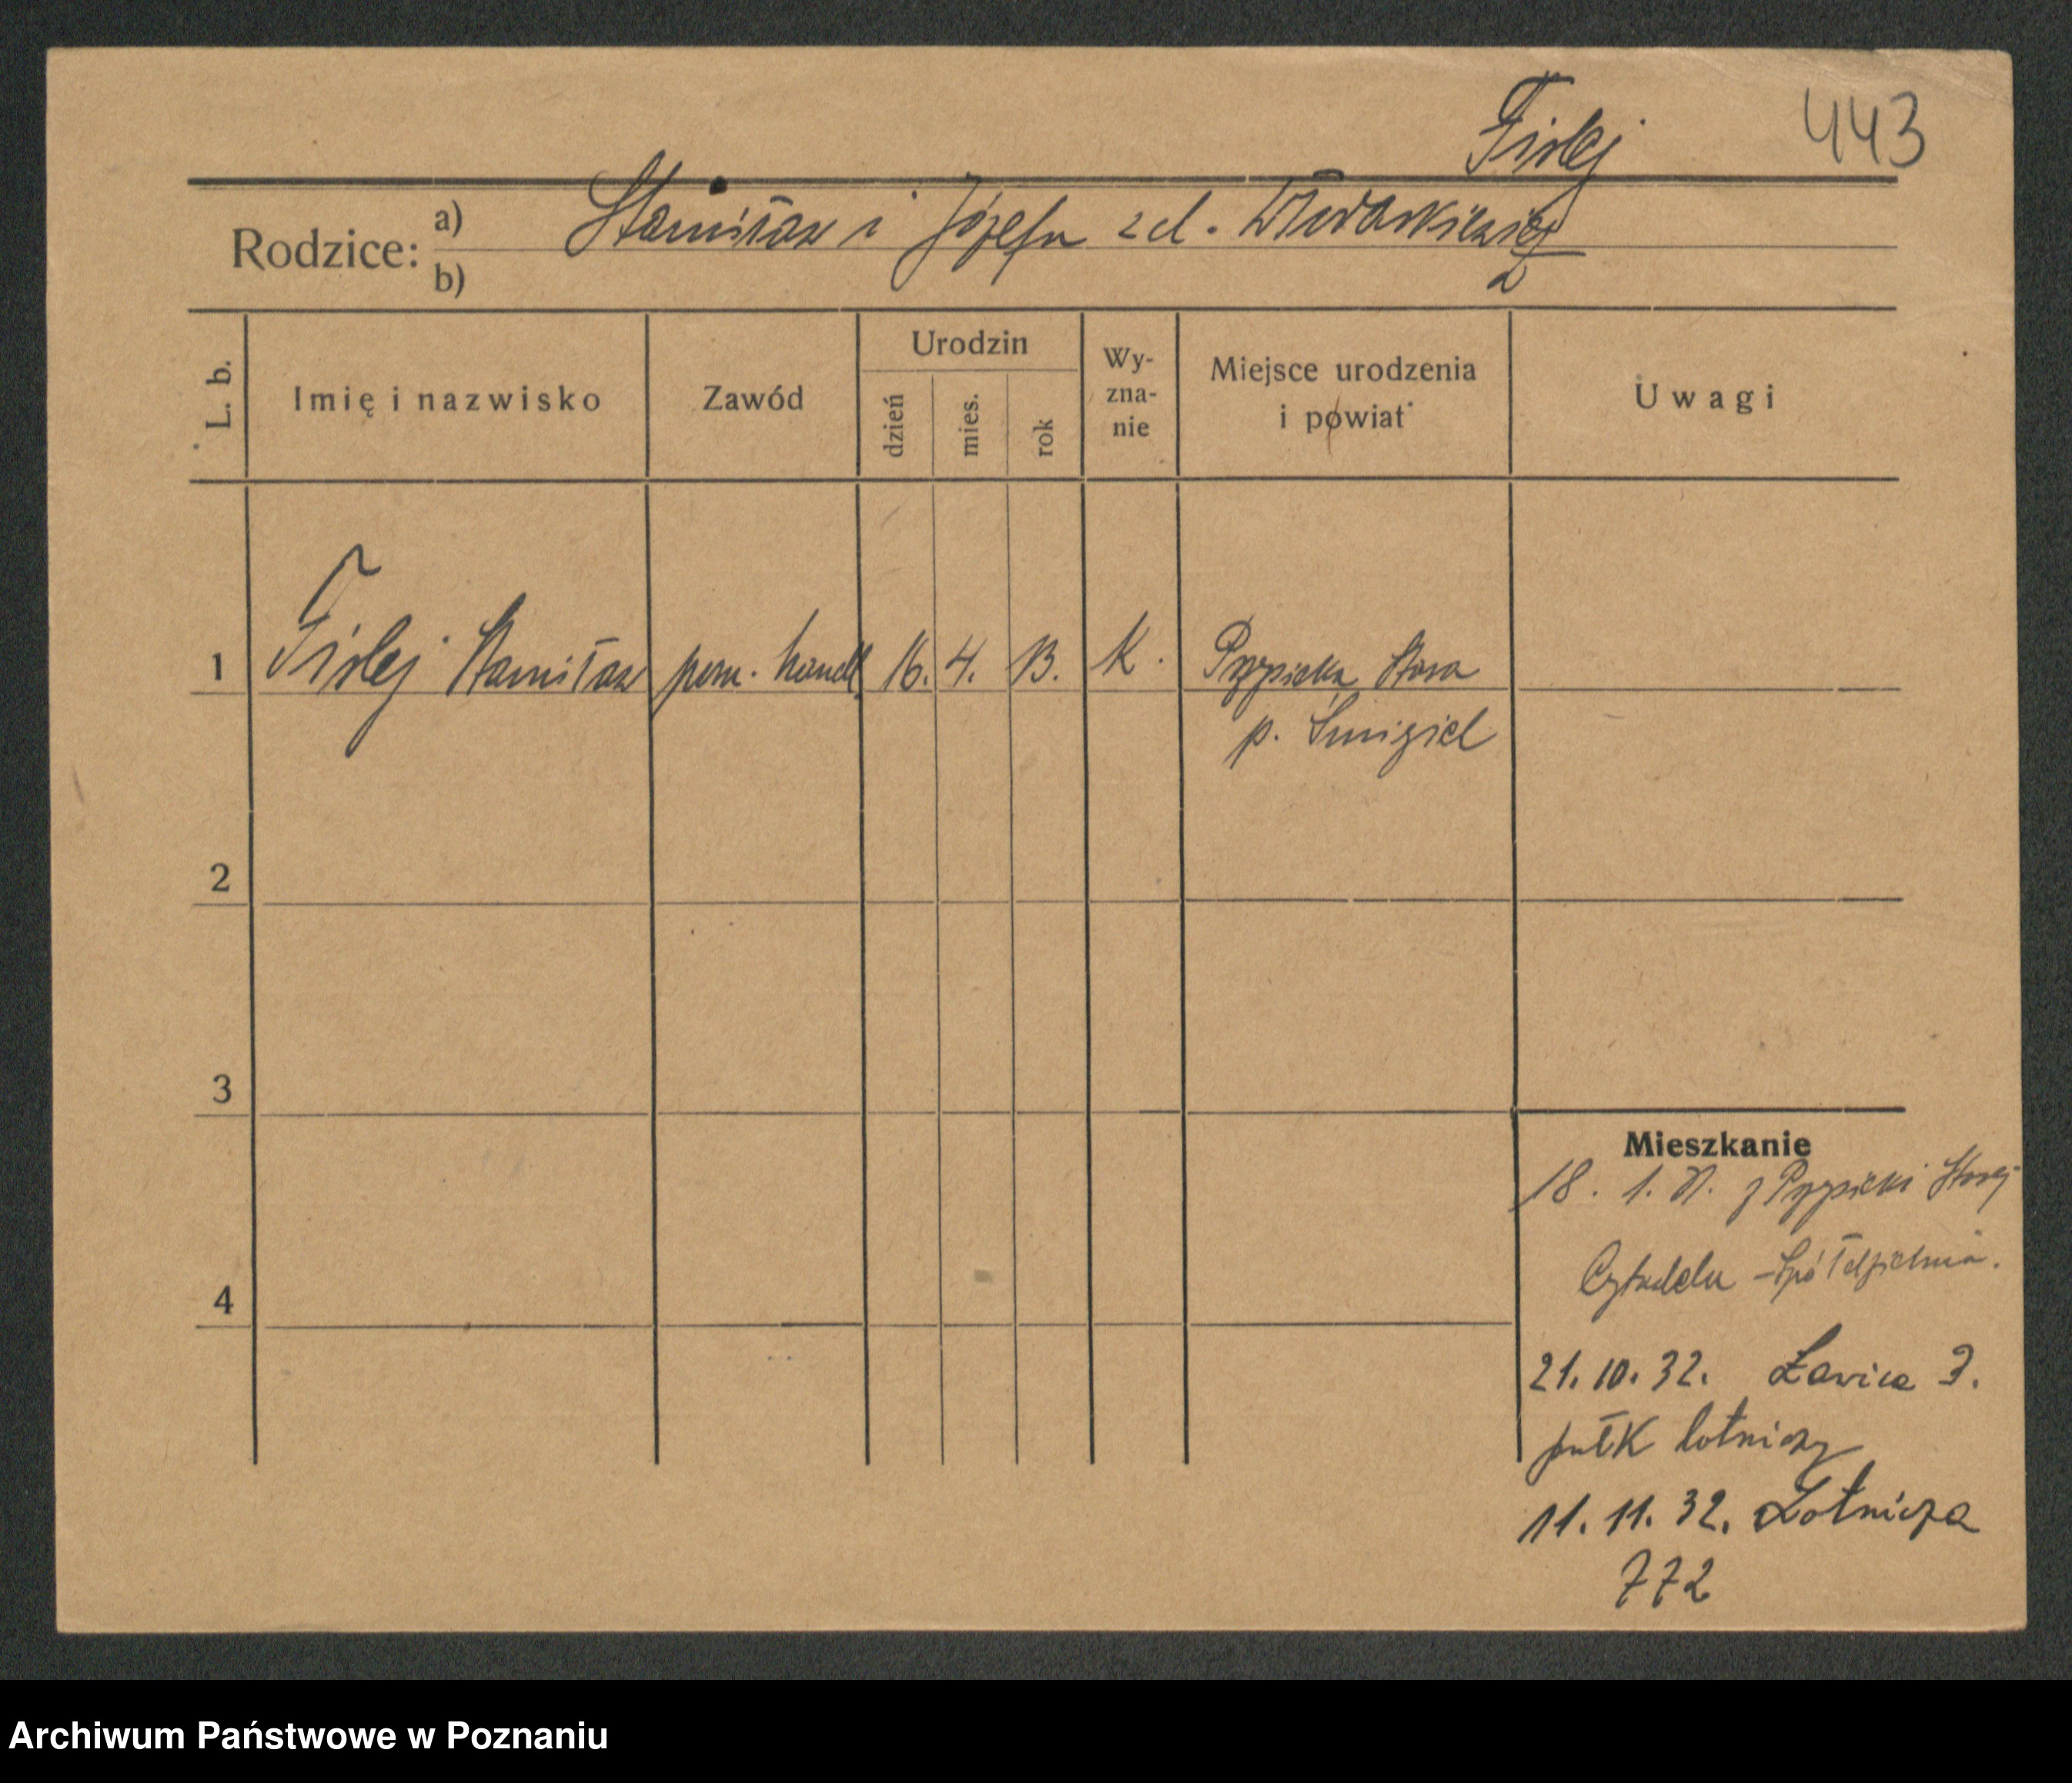 Fislej 443
Rodzice: a) Stanisław i Józefa zd.
b)
L. b. Imię i nazwisko Zawód Urodzin dzień mies. rok Wy-zna-nie Miejsce urodzenia i powiat Uwagi
1 Fislej Stanisław pom. handl. 16. 4. 13. K. Przysieka Stara
p. Śmigiel
2
3
4
Mieszkanie
18. 1. z Przysieki Starej
Cytadela – Spółdzielnia.
21. 10. 32. Ławica 3.
pułk lotniczy
11. 11. 32. Lotnicza
772
Archiwum Państwowe w Poznaniu